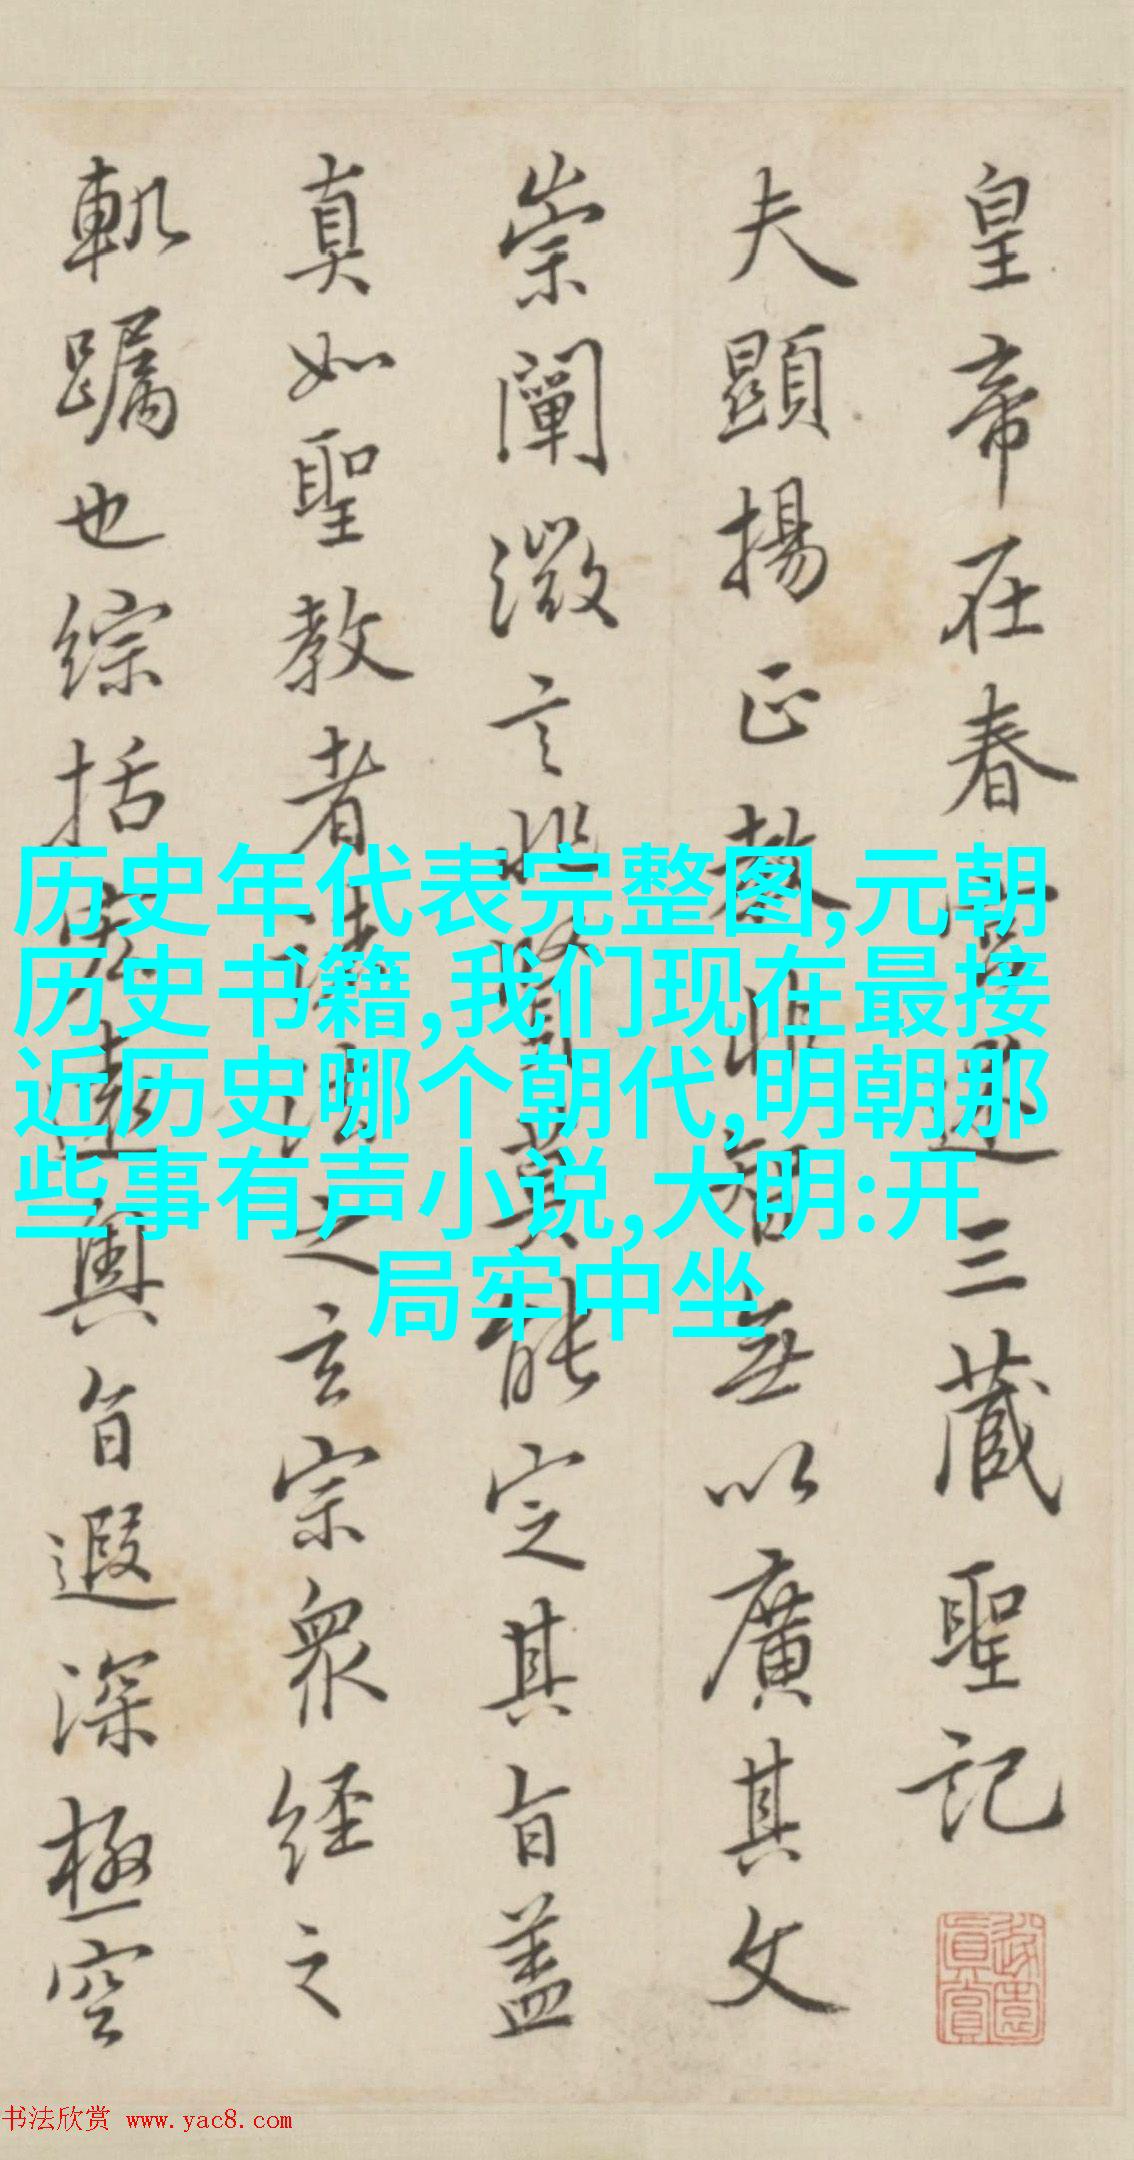 皇帝在春宫述三藏聖記
夫顯揚正教非智無以廣其文
崇闡微言非賢莫能定其旨蓋
真如聖教者諸法之玄宗眾經之
軌躅也綜括宏遠奧旨遐深極空
历史年代表完整图,元朝
历史书籍,我们现在最接
近历史哪个朝代,明朝那
些事有声小说,大明:开
局牢中坐
书法欣赏 www.yac8.com